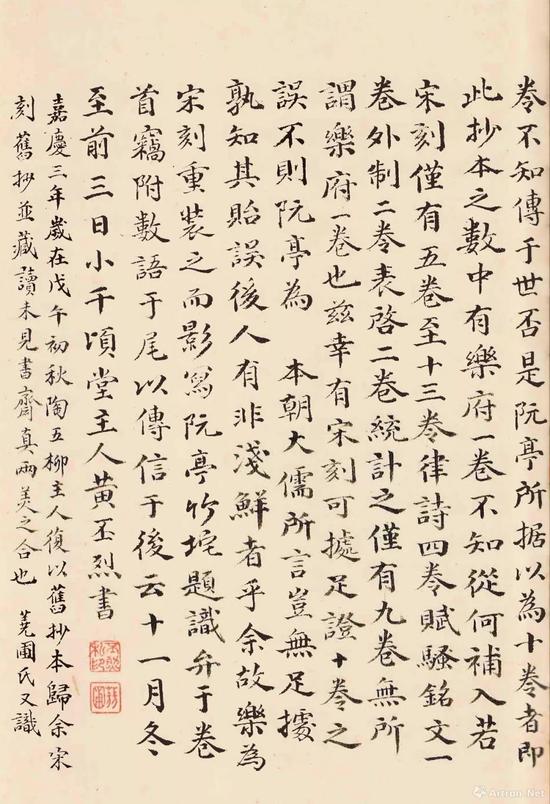 卷不知傳于世否是阮亭所据以為十卷者即
此抄本之數中有樂府一卷不知從何補入若
宋刻僅有五卷至十三卷律詩四卷賦騷銘文一
卷外制二卷表啓二卷統計之僅有九卷無所
謂樂府一卷也兹幸有宋刻可據足證十卷之
誤不則阮亭為 本朝大儒所言豈無足據
孰知其貽誤後人有非淺鮮者乎余故樂為
宋刻重裝之而影寫阮亭竹垞題識弁于卷
首竊附數語于尾以傳信于後云十一月冬
至前三日小千頃堂主人黃丕烈書
嘉慶三年歲在戊午初秋陶五柳主人復以舊抄本歸余宋
刻舊抄並藏讀未見書齋真兩美之合也 蕘圃氏又識
Artron.Net